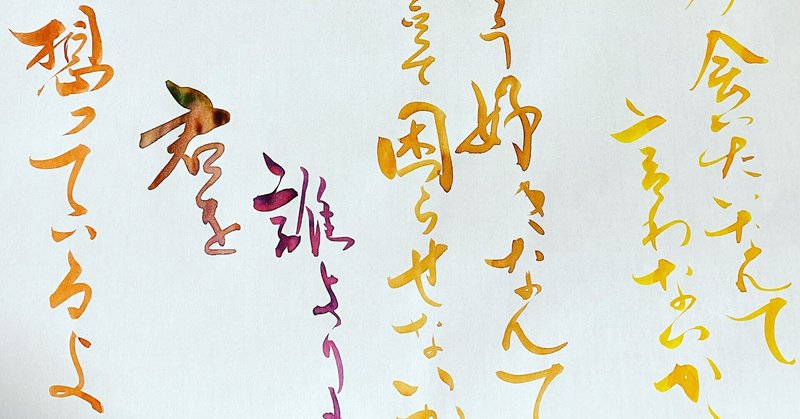 会いたいなんて
言わないか
う好きなんて
言って困らせないか
誰よりも
君を
想っているよ